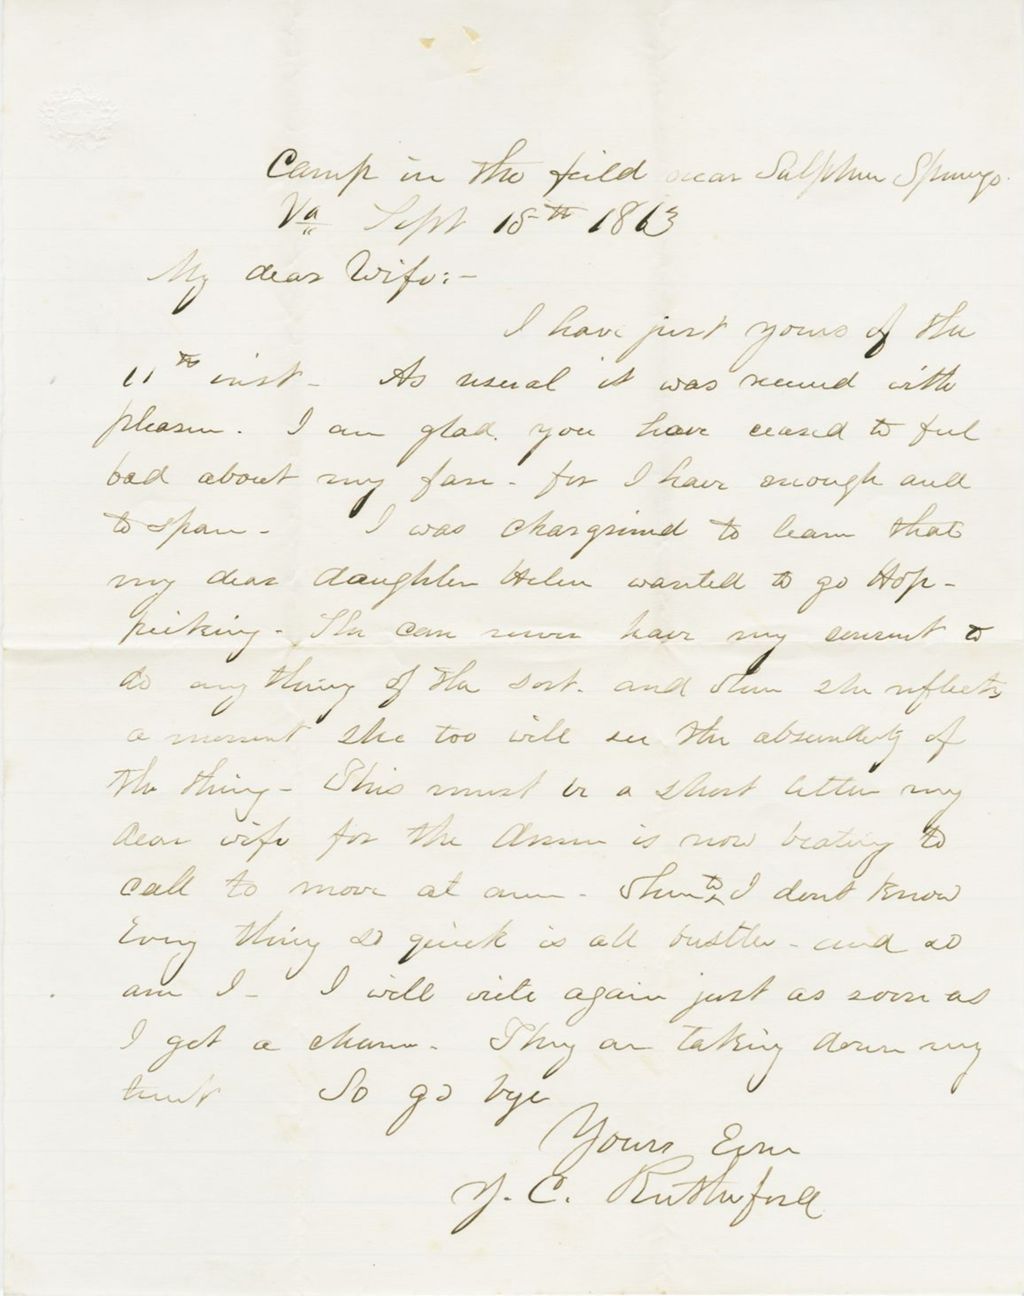 Camp in the feild near Sulphur Springs
Va Sept 15th 1863
My dear Wife:-
I have just yours of the
11th inst - As usual it was received with
pleasure. I am glad you have ceased to feel
bad about my fare - for I have enough and
to spare - I was chargrined to learn that
my dear daughter Helen wanted to go Hop-
picking - She can never have my consent to
do any thing of the sort. and when she reflects
a moment she too will see the absurdity of
the thing - This must be a short letter my
dear wife for the drum is now beating to
call to move at once - Where to I dont know
Every thing so quick is all bustle - and so
am I - I will write again just as soon as
I get a chance - They are taking down my
tent So go bye
Yours Ever
J. C. Rutherford